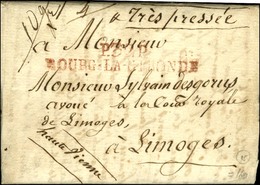 très pressée
à Monsieur
BOURG-LA-
Monsieur Sylvain desgorces
avoué à la Cour royale
de Limoges,
haute Vienne
à Limoges.